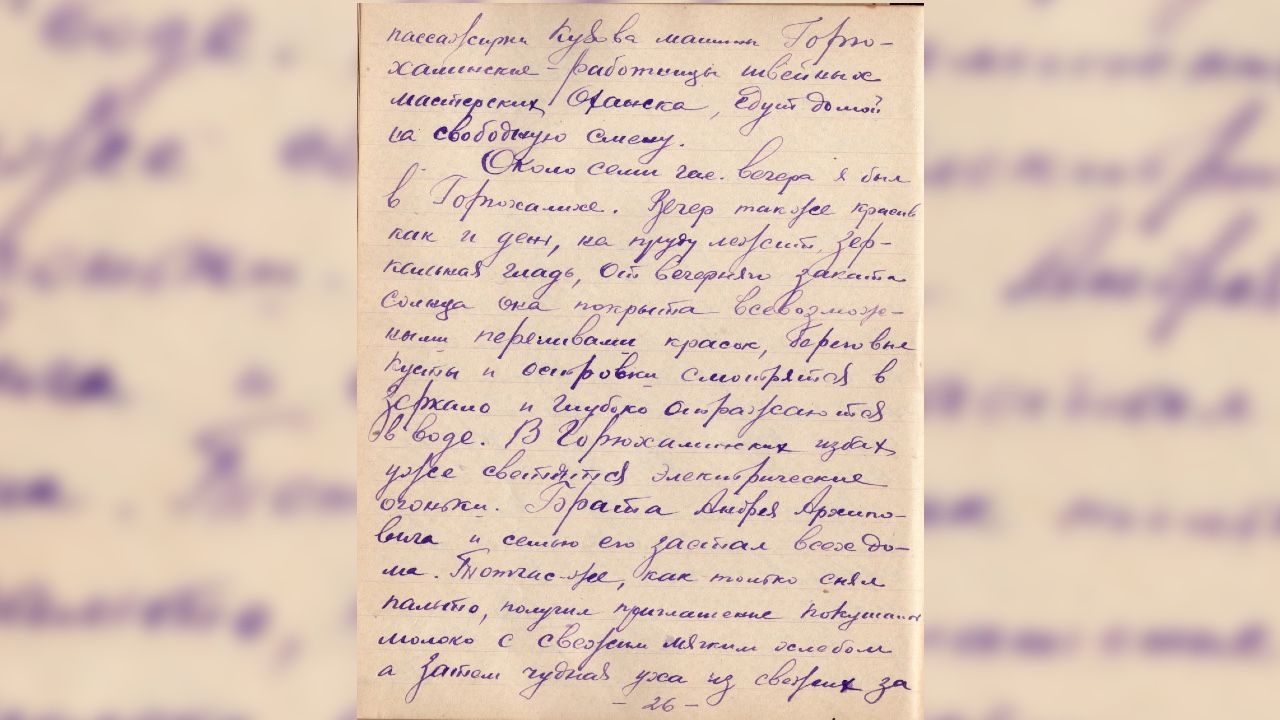 пассажирки кузова машины Горю-
халинские - работницы швейных
мастерских Оханска, едут домой
на свободную смену.
Около семи час. вечера я был
в Горюхалихе. Вечер также красив
как и день, на пруду лежит зер-
кальная гладь, от вечерняго заката
солнца она покрыта всевозмож-
ными переливами красок, береговые
кусты и островки смотрятся в
зеркало и глубоко отражаются
в воде. В Горюхалинских избах
уже светятся электрические
огоньки. Брата Андрея Архипо-
вича и семью его застал всех до-
ма. Тотчас-же, как только снял
пальто, получил приглашение покушать
молоко с свежим мягким хлебом
а затем чудная уха из свежих за
- 26 -